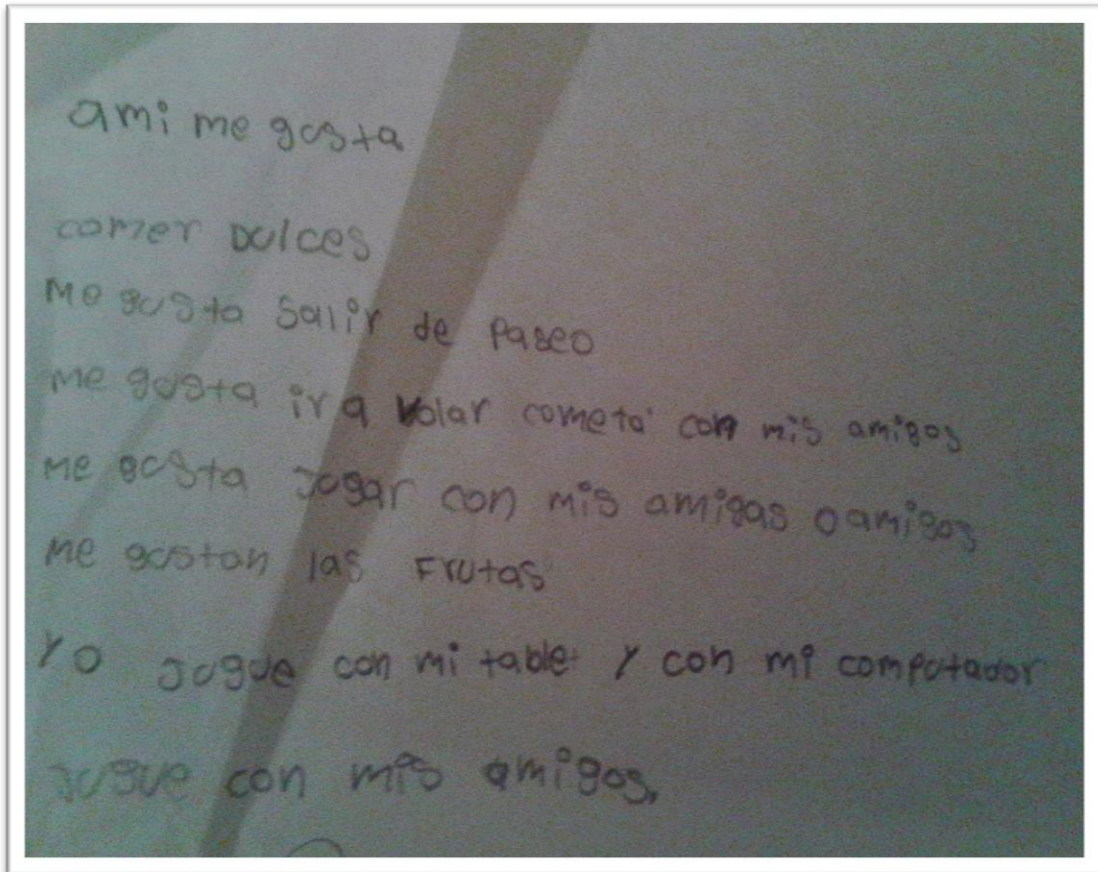 ami me gusta
comer Dulces
Me gusta Salir de Paseo
Me gusta ir a Volar cometa con mis amigos
Me gusta Jugar con mis amigas o amigos
Me gustan las Frutas
Yo Jugue con mi table y con mi computador
Jugue con mis amigos,